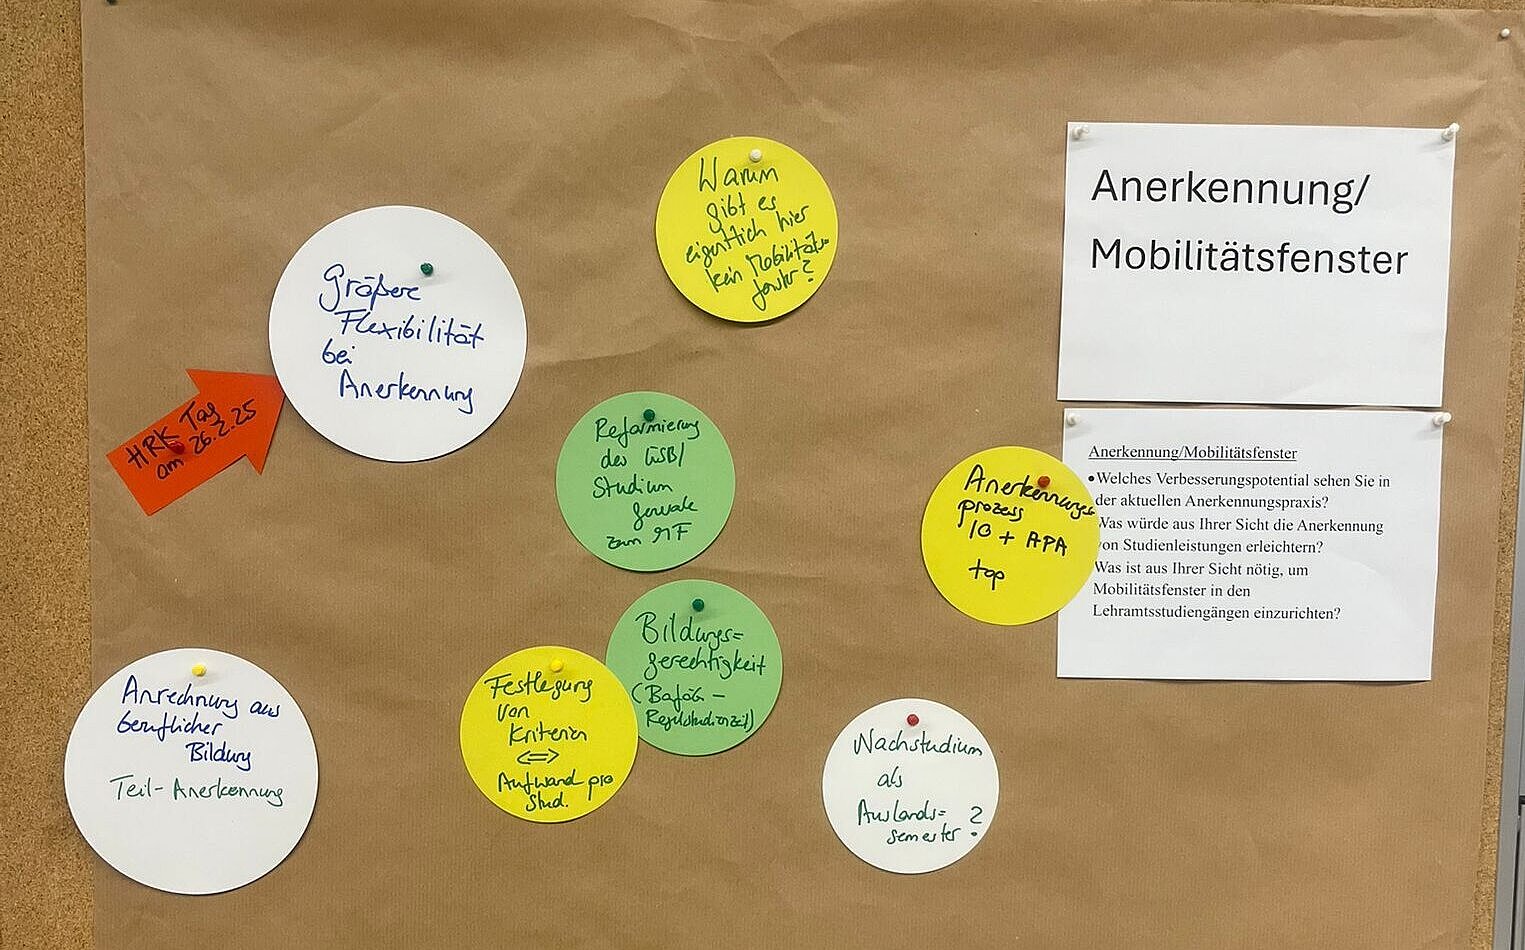 Anerkennung/
Mobilitätsfenster
Anerkennung/Mobilitätsfenster
•Welches Verbesserungspotential sehen Sie in
der aktuellen Anerkennungspraxis?
Was würde aus Ihrer Sicht die Anerkennung
von Studienleistungen erleichtern?
Was ist aus Ihrer Sicht nötig, um
Mobilitätsfenster in den
Lehramtsstudiengängen einzurichten?
Warum
gibt es
eigentlich hier
kein Mobilitäts-
fenster?
Größere
Flexibilität
bei
Anerkennung
HRK Tag
am 26.2.25
Reformierung
des GSB/
Studium
generale
zum MF
Anerkennungs-
prozess
IO + APA
top
Bildungs=
gerechtigkeit
(Bafög –
Regelstudienzeit)
Festlegung
von
Kriterien
<=>
Aufwand pro
Stud.
Anrechnung aus
beruflicher
Bildung
Teil-Anerkennung
Wachstudium
als
Auslands=
semester?